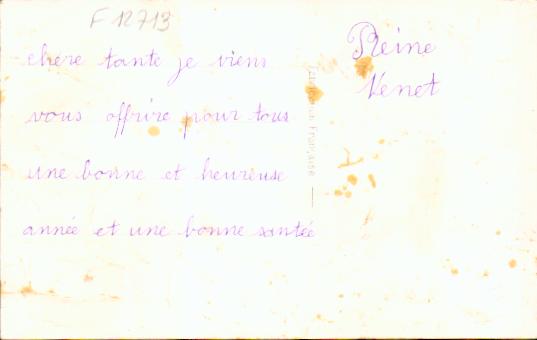 F 12713
chère tante je viens
vous offrire pour tous
une bonne et heureuse
année et une bonne santée
Reine
Venet
Française